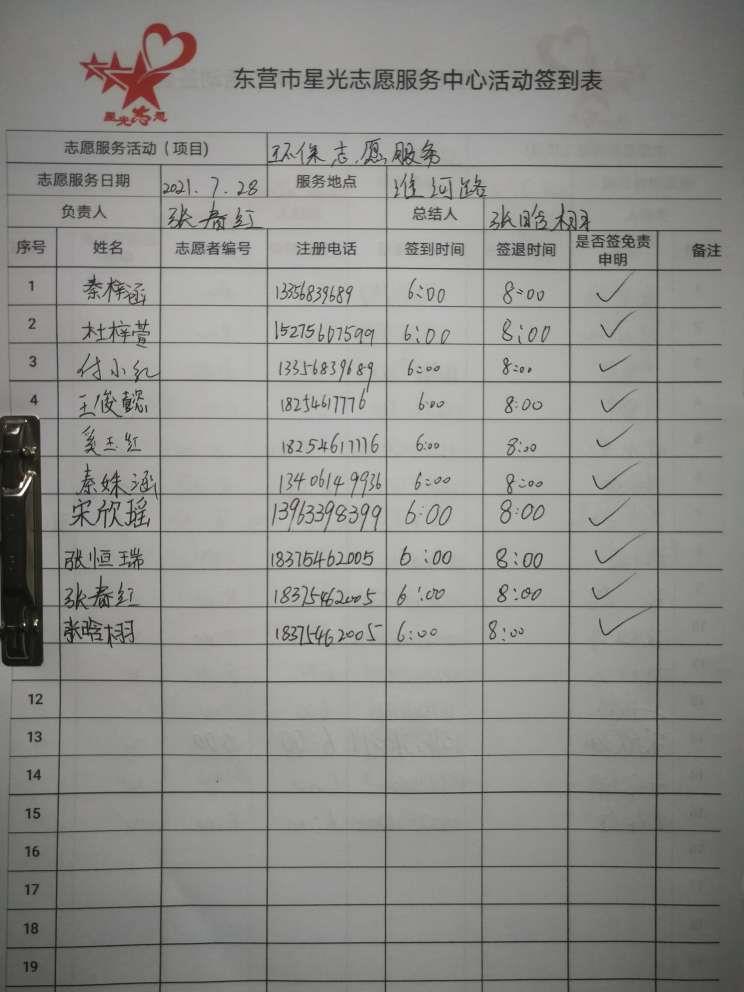 星光志愿
东营市星光志愿服务中心活动签到表
志愿服务活动（项目) 环保志愿服务
志愿服务日期 2021.7.28 服务地点 淮河路
负责人 张春红 总结人 张晗栩
序号 姓名 志愿者编号 注册电话 签到时间 签退时间 是否签免责申明 备注
1 秦梓涵 13356839689 6:00 8:00 ✓
2 杜梓萱 15275607599 6:00 8:00 ✓
3 付小红 13356839689 6:00 8:00 ✓
4 王俊懿 18254617776 6:00 8:00 ✓
奚玉红 18254617776 6:00 8:00 ✓
秦姝涵 13406149936 6:00 8:00 ✓
宋欣瑶 13963398399 6:00 8:00 ✓
张恒瑞 18375462005 6:00 8:00 ✓
张春红 18375462005 6:00 8:00 ✓
张晗栩 18375462005 6:00 8:00 ✓
12
13
14
15
16
17
18
19